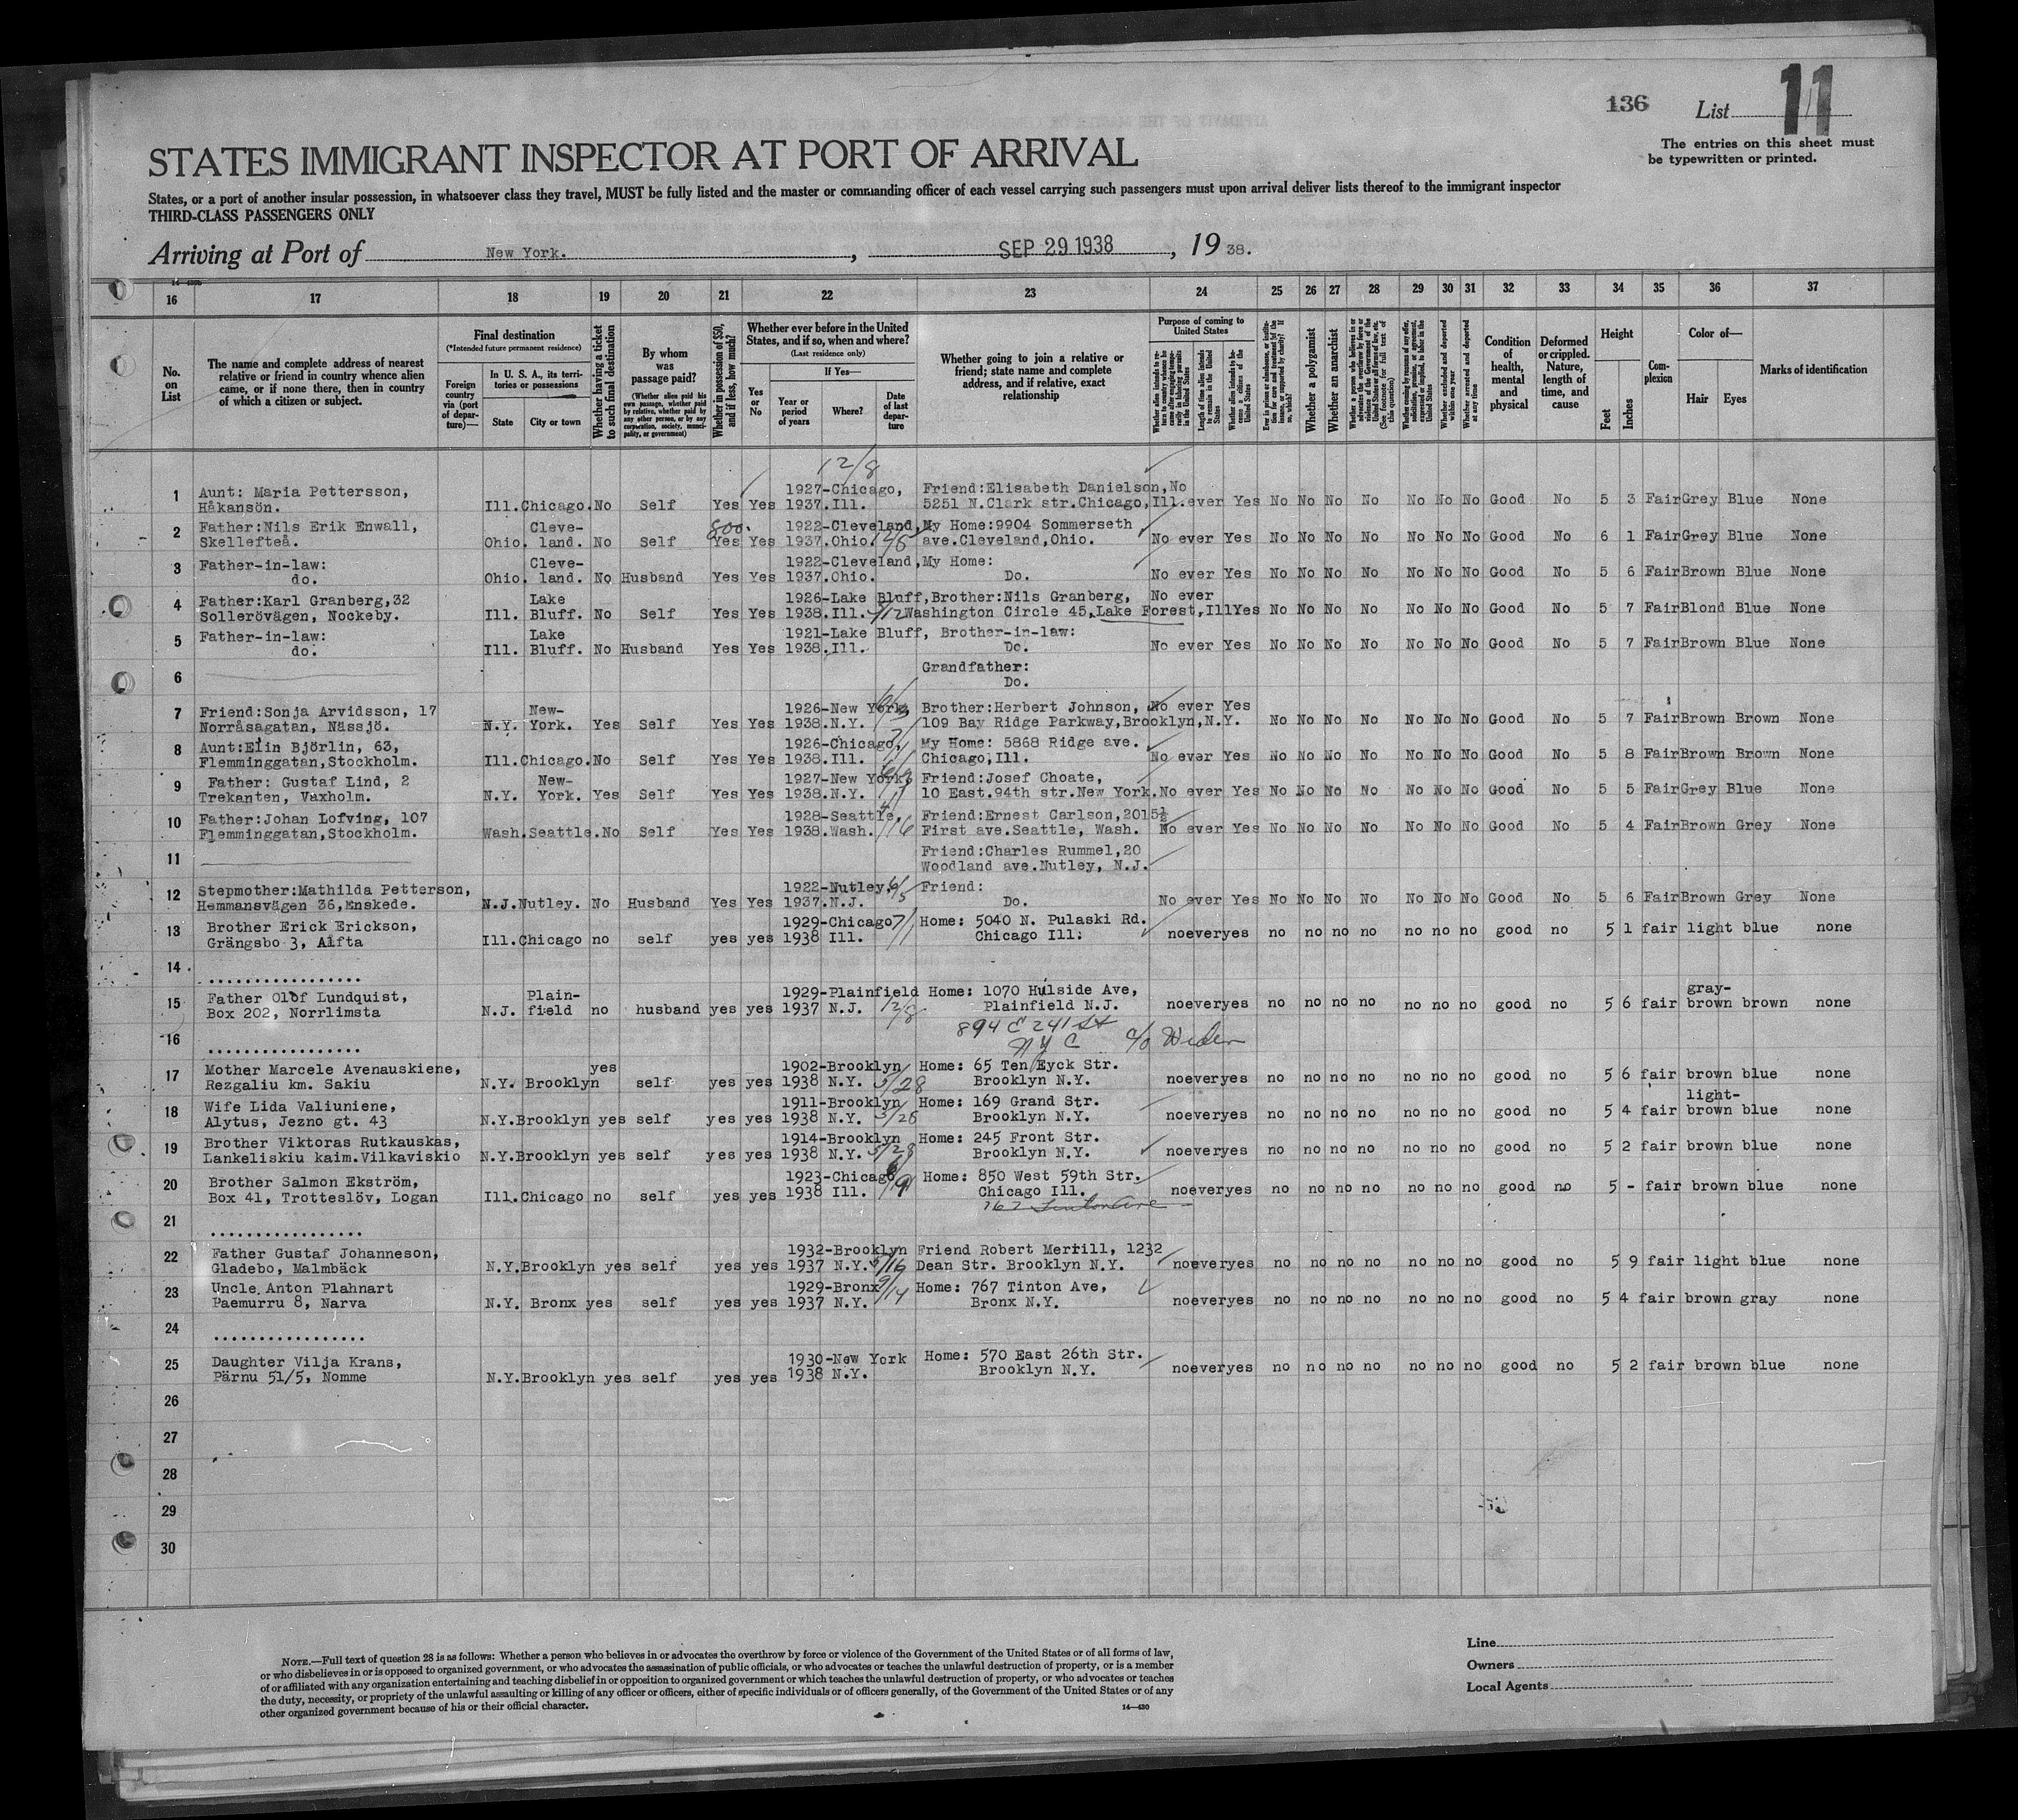 136 List 11
The entries on this sheet must
be typewritten or printed.
STATES IMMIGRANT INSPECTOR AT PORT OF ARRIVAL
States, or a port of another insular possession, in whatsoever class they travel, MUST be fully listed and the master or commanding officer of each vessel carrying such passengers must upon arrival deliver lists thereof to the immigrant inspector
THIRD-CLASS PASSENGERS ONLY
Arriving at Port of New York. , SEP 29 1938 , 19 38.
16 17 18 19 20 21 22 23 24 25 26 27 28 29 30 31 32 33 34 35 36 37
No. on List
The name and complete address of nearest
relative or friend in country whence alien
came, or if none there, then in country
of which a citizen or subject.
Final destination
(*Intended future permanent residence)
Foreign country via (port of departure)—
In U. S. A., its territories or possessions
State City or town
Whether having a ticket to such final destination
By whom was passage paid?
(Whether alien paid his own passage, whether paid by relative, whether paid by any other person, or by any corporation, society, municipality, or government)
Whether in possession of $50, and if less, how much?
Whether ever before in the United
States, and if so, when and where?
(Last residence only)
Yes or No
If Yes—
Year or period of years
Where?
Date of last departure
Whether going to join a relative or
friend; state name and complete
address, and if relative, exact
relationship
Purpose of coming to United States
Length of time alien intends to remain in the United States
Whether alien intends to become a citizen of the United States
Whether a polygamist
Whether an anarchist
Whether excluded and deported within one year
Whether arrested and deported at any time
Condition of health, mental and physical
Deformed or crippled. Nature, length of time, and cause
Height
Feet Inches
Complexion
Color of—
Hair Eyes
Marks of identification
12/8
1 Aunt: Maria Pettersson, 1927-Chicago, Friend:Elisabeth Danielson, No
Håkansön. Ill. Chicago. No Self Yes Yes 1937. Ill. 5251 N.Clark str.Chicago,Ill. ever Yes No No No No No No No Good No 5 3 Fair Grey Blue None
2 Father:Nils Erik Enwall, Cleve- 800. 1922-Cleveland, My Home:9904 Sommerseth
Skellefteå. Ohio. land. No Self Yes Yes 1937. Ohio. 12/8 ave.Cleveland,Ohio. No ever Yes No No No No No No No Good No 6 1 Fair Grey Blue None
3 Father-in-law: Cleve- 1922-Cleveland, My Home:
do. Ohio. land. No Husband Yes Yes 1937. Ohio. Do. No ever Yes No No No No No No No Good No 5 6 Fair Brown Blue None
4 Father:Karl Granberg,32 Lake 1926-Lake Bluff, Brother:Nils Granberg, No ever
Sollerövägen, Nockeby. Ill. Bluff. No Self Yes Yes 1938. Ill. Washington Circle 45, Lake Forest,Ill Yes No No No No No No No Good No 5 7 Fair Blond Blue None
5 Father-in-law: Lake 1921-Lake Bluff, Brother-in-law:
do. Ill. Bluff. No Husband Yes Yes 1938. Ill. Do. No ever Yes No No No No No No No Good No 5 7 Fair Brown Blue None
6 Grandfather:
Do.
7 Friend:Sonja Arvidsson, 17 New- 1926-New York, Brother:Herbert Johnson, No ever Yes
Norråsagatan, Nässjö. N.Y. York. Yes Self Yes Yes 1938. N.Y. 109 Bay Ridge Parkway,Brooklyn,N.Y. No No No No No No No Good No 5 7 Fair Brown Brown None
8 Aunt:Elin Björlin, 63, 1926-Chicago, My Home: 5868 Ridge ave.
Flemminggatan,Stockholm. Ill. Chicago. No Self Yes Yes 1938. Ill. Chicago,Ill. No ever Yes No No No No No No No Good No 5 8 Fair Brown Brown None
9 Father: Gustaf Lind, 2 New- 1927-New York, Friend:Josef Choate,
Trekanten, Vaxholm. N.Y. York. Yes Self Yes Yes 1938. N.Y. 10 East.94th str.New York. No ever Yes No No No No No No No Good No 5 5 Fair Grey Blue None
10 Father:Johan Lofving, 107 1928-Seattle, Friend:Ernest Carlson,2015½
Flemminggatan,Stockholm. Wash. Seattle. No Self Yes Yes 1938. Wash. 4/16 First ave.Seattle, Wash. No ever Yes No No No No No No No Good No 5 4 Fair Brown Grey None
11 Friend:Charles Rummel,20
Woodland ave.Nutley, N.J.
12 Stepmother:Mathilda Petterson, 1922-Nutley, Friend:
Hemmansvägen 36,Enskede. N.J. Nutley. No Husband Yes Yes 1937. N.J. Do. No ever Yes No No No No No No No Good No 5 6 Fair Brown Grey None
13 Brother Erick Erickson, 1929-Chicago 7/1 Home: 5040 N. Pulaski Rd.
Grängsbo 3, Alfta Ill. Chicago no self yes yes 1938 Ill. Chicago Ill. no ever yes no no no no no no no good no 5 1 fair light blue none
14 .................
15 Father Olof Lundquist, Plain- 1929-Plainfield Home: 1070 Hulside Ave, gray-
Box 202, Norrlimsta N.J. field no husband yes yes 1937 N.J. 12/8 Plainfield N.J. no ever yes no no no no no no no good no 5 6 fair brown brown none
894 E 241 St
NYC c/o Wider
16 .................
17 Mother Marcele Avenauskiene, yes 1902-Brooklyn Home: 65 Ten Eyck Str.
Rezgaliu km. Sakiu N.Y. Brooklyn self yes yes 1938 N.Y. 5/28 Brooklyn N.Y. no ever yes no no no no no no no good no 5 6 fair brown blue none
18 Wife Lida Valiuniene, 1911-Brooklyn Home: 169 Grand Str. light-
Alytus, Jezno gt. 43 N.Y. Brooklyn yes self yes yes 1938 N.Y. 5/28 Brooklyn N.Y. no ever yes no no no no no no no good no 5 4 fair brown blue none
19 Brother Viktoras Rutkauskas, 1914-Brooklyn Home: 245 Front Str.
Lankeliskiu kaim.Vilkaviskio N.Y. Brooklyn yes self yes yes 1938 N.Y. 5/28 Brooklyn N.Y. no ever yes no no no no no no no good no 5 2 fair brown blue none
20 Brother Salmon Ekström, 1923-Chicago Home: 850 West 59th Str.
Box 41, Trotteslöv, Logan Ill. Chicago no self yes yes 1938 Ill. Chicago Ill. no ever yes no no no no no no no good no 5 - fair brown blue none
767
21 .................
22 Father Gustaf Johanneson, 1932-Brooklyn Friend Robert Merrill, 1232
Gladebo, Malmbäck N.Y. Brooklyn yes self yes yes 1937 N.Y. Dean Str. Brooklyn N.Y. no ever yes no no no no no no no good no 5 9 fair light blue none
23 Uncle Anton Plahnart 1929-Bronx 9/14 Home: 767 Tinton Ave,
Paemurru 8, Narva N.Y. Bronx yes self yes yes 1937 N.Y. Bronx N.Y. no ever yes no no no no no no no good no 5 4 fair brown gray none
24 .................
25 Daughter Vilja Krans, 1930-New York Home: 570 East 26th Str.
Pärnu 51/5, Nomme N.Y. Brooklyn yes self yes yes 1938 N.Y. Brooklyn N.Y. no ever yes no no no no no no no good no 5 2 fair brown blue none
26
27
28
29
30
NOTE.—Full text of question 28 is as follows: Whether a person who believes in or advocates the overthrow by force or violence of the Government of the United States or of all forms of law,
or who disbelieves in or is opposed to organized government, or who advocates the assassination of public officials, or who advocates or teaches the unlawful destruction of property, or is a member
of or affiliated with any organization entertaining and teaching disbelief in or opposition to organized government or which teaches the unlawful destruction of property, or who advocates or teaches
the duty, necessity, or propriety of the unlawful assaulting or killing of any officer or officers, either of specific individuals or of officers generally, of the Government of the United States or of any
other organized government because of his or their official character.
14—430
Line
Owners
Local Agents